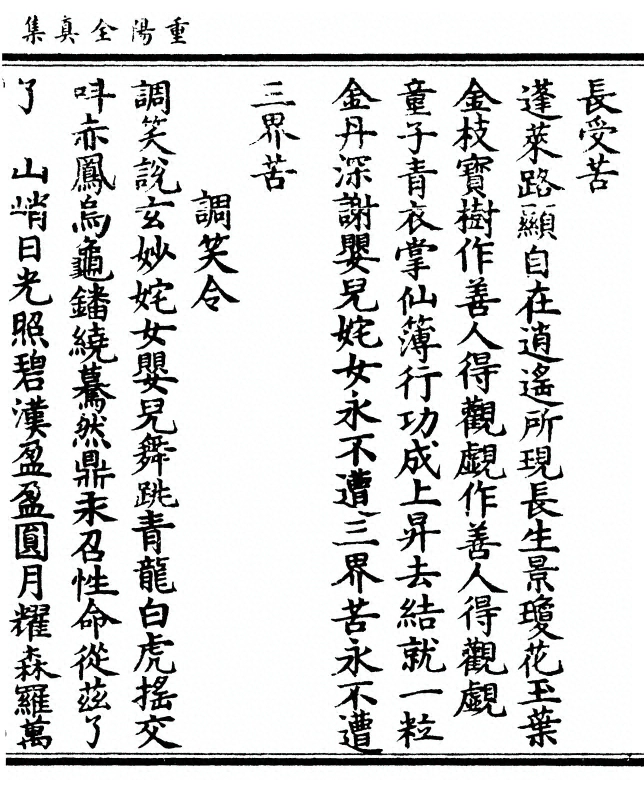 重陽全真集
長受苦
蓬萊路顯自在逍遙所現長生景瓊花玉葉
金枝寶樹作善人得觀覷作善人得觀覷
童子青衣掌仙簿行功成上昇去結就一粒
金丹深謝嬰兒姹女永不遭三界苦永不遭
三界苦
調笑令
調笑說玄妙姹女嬰兒舞跳青龍白虎搖交
呌赤鳳烏龜鐇繞驀然鼎汞召性命從茲了
了　山峭日光照碧漢盈盈圓月耀森羅萬